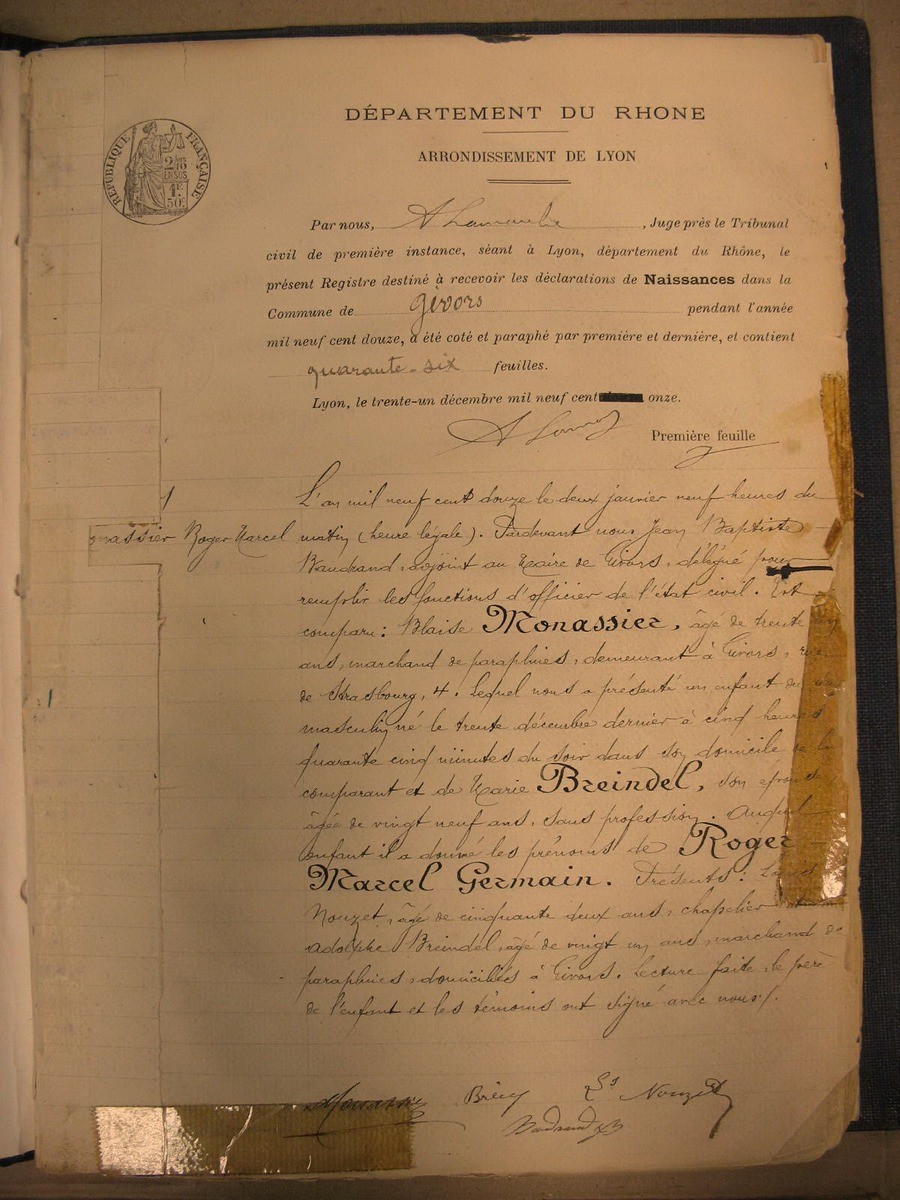 DÉPARTEMENT DU RHONE
ARRONDISSEMENT DE LYON
RÉPUBLIQUE FRANÇAISE
2/10 EN SUS
1F 50c
Par nous, , Juge près le Tribunal
civil de première instance, séant à Lyon, département du Rhône, le
présent Registre destiné à recevoir les déclarations de Naissances dans la
Commune de Givors pendant l'année
mil neuf cent douze, a été coté et paraphé par première et dernière, et contient
quarante-six feuilles.
Lyon, le trente-un décembre mil neuf cent onze.
Première feuille
1
massier Roger Marcel
L'an mil neuf cent douze le deux janvier neuf heures du
matin (heure légale). Pardevant nous Jean Baptiste
Baudrand, adjoint au Maire de Givors, délégué pour
remplir les fonctions d'officier de l'état civil. Est
comparu: Blaise Monassier, âgé de trente
ans, marchand de parapluies, demeurant à Givors, rue
de Strasbourg, 4. Lequel nous a présenté un enfant du
masculin né le trente décembre dernier à cinq heures
quarante cinq minutes du soir dans son domicile de lui
comparant et de Marie Breindel, son épouse
âgée de vingt neuf ans, sans profession. Auquel
enfant il a donné les prénoms de Roger
Marcel Germain. Présents: Louis
Nouzet, âgé de cinquante deux ans, chapelier et
Adolphe Breindel, âgé de vingt un ans, marchand de
parapluies, domiciliés à Givors. Lecture faite, le père
de l'enfant et les témoins ont signé avec nous.
Monassier Ls Nouzet
Baudrand